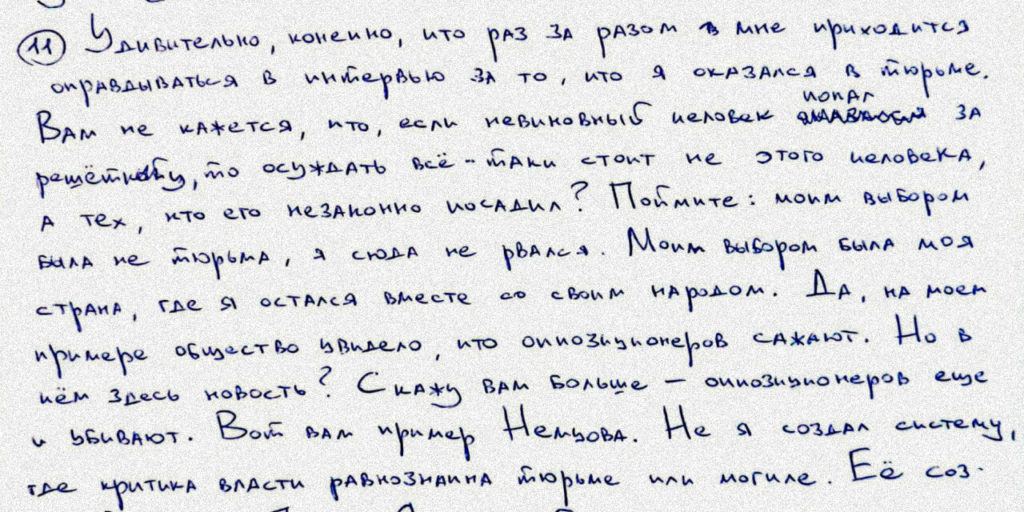 11 Удивительно, конечно, что раз за разом мне приходится
оправдываться в интервью за то, что я оказался в тюрьме.
Вам не кажется, что, если невиновный человек попал за
решётку, то осуждать всё-таки стоит не этого человека,
а тех, кто его незаконно посадил? Поймите: моим выбором
была не тюрьма, я сюда не рвался. Моим выбором была моя
страна, где я остался вместе со своим народом. Да, на моем
примере общество увидело, что оппозиционеров сажают. Но в
чём здесь новость? Скажу вам больше – оппозиционеров еще
и убивают. Вот вам пример Немцова. Не я создал систему,
где критика власти равнозначна тюрьме или могиле. Её соз-